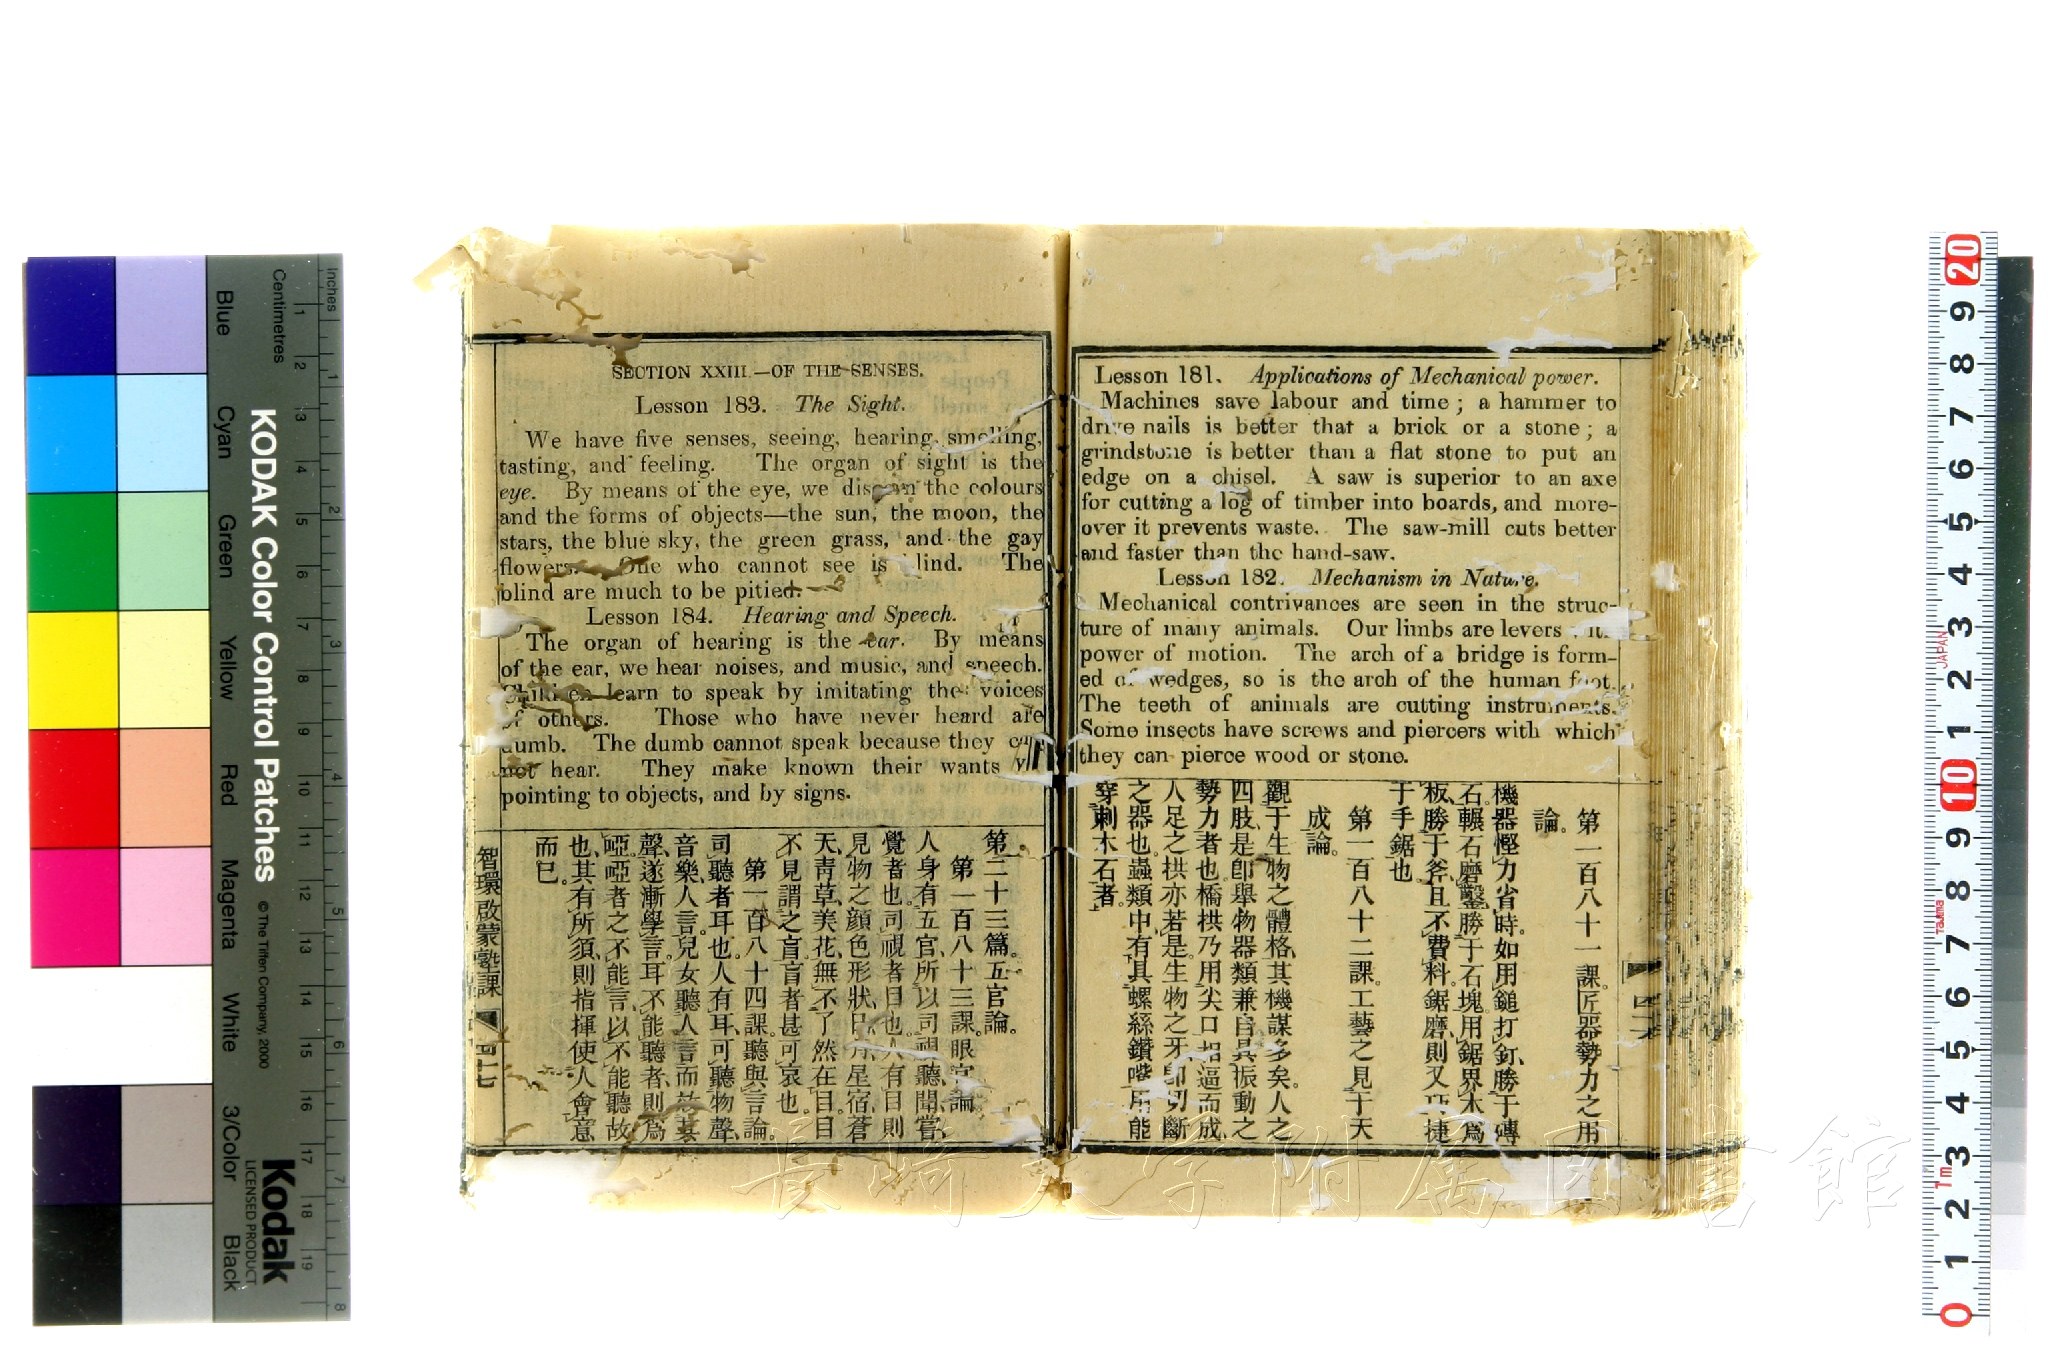 SECTION XXIII.—OF THE SENSES.
Lesson 183. The Sight.
We have five senses, seeing, hearing, smelling,
tasting, and feeling. The organ of sight is the
eye. By means of the eye, we the colours
and the forms of objects—the sun, the moon, the
stars, the blue sky, the green grass, and the gay
flowers. One who cannot see is blind. The
blind are much to be pitied.
Lesson 184. Hearing and Speech.
The organ of hearing is the ear. By means
of the ear, we hear noises, and music, and speech.
Children learn to speak by imitating the voices
of others. Those who have never heard are
dumb. The dumb cannot speak because they can
not hear. They make known their wants by
pointing to objects, and by signs.
第二十三篇。五官論。
第一百八十三課。眼官論。
人身有五官、所以司視聽聞嘗
覺者也。司視者目也。人有目則
見物之顔色形狀、日月星宿、蒼
天、靑草、美花、無不了然在目。目
不見謂之盲。盲者甚可哀也。
第一百八十四課。聽與言論。
司聽者耳也。人有耳、可聽物聲、
音樂、人言。兒女聽人言而
聲、遂漸學言。耳不能聽者、則爲
啞。啞者之不能言、以不能聽故
也。其有所須、則指揮使人會意
而巳。
智環啟蒙塾課
四十七
Lesson 181. Applications of Mechanical power.
Machines save labour and time; a hammer to
drive nails is better that a brick or a stone; a
grindstone is better than a flat stone to put an
edge on a chisel. A saw is superior to an axe
for cutting a log of timber into boards, and more-
over it prevents waste. The saw-mill cuts better
and faster than the hand-saw.
Lesson 182. Mechanism in Nature.
Mechanical contrivances are seen in the struc-
ture of many animals. Our limbs are levers with
power of motion. The arch of a bridge is form-
ed of wedges, so is the arch of the human foot.
The teeth of animals are cutting instruments.
Some insects have screws and piercers with which
they can pierce wood or stone.
第一百八十一課。匠器勢力之用
論。
機器慳力省時。如用鎚打釘、勝于磚
石。輾石磨鑿、勝于石塊。用鋸界木爲
板、勝于斧、且不費料。鋸磨、則又巧捷
于手鋸也
第一百八十二課。工藝之見于天
成論。
觀于生物之體格、其機謀多矣。人之
四肢、是卽舉物器類、兼自具振動之
勢力者也。橋拱乃用尖口相逼而成、
人足之拱亦若是。生物之牙、卽切斷
之器也。蟲類中、有具螺絲鑽嘴、用能
穿刺木石者。
四十六
KODAK Color Control Patches
© The Tiffen Company, 2000
Kodak
LICENSED PRODUCT
Inches
Centimetres
Blue
Cyan
Green
Yellow
Red
Magenta
White
3/Color
Black
1 2 3 4 5 6 7 8 9 10 11 12 13 14 15 16 17 18 19
1 2 3 4 5 6 7 8
20 9 8 7 6 5 4 3 2 1 10 9 8 7 6 5 4 3 2 1 0
JAPAN
Tajima
1m
長崎大学附属図書館